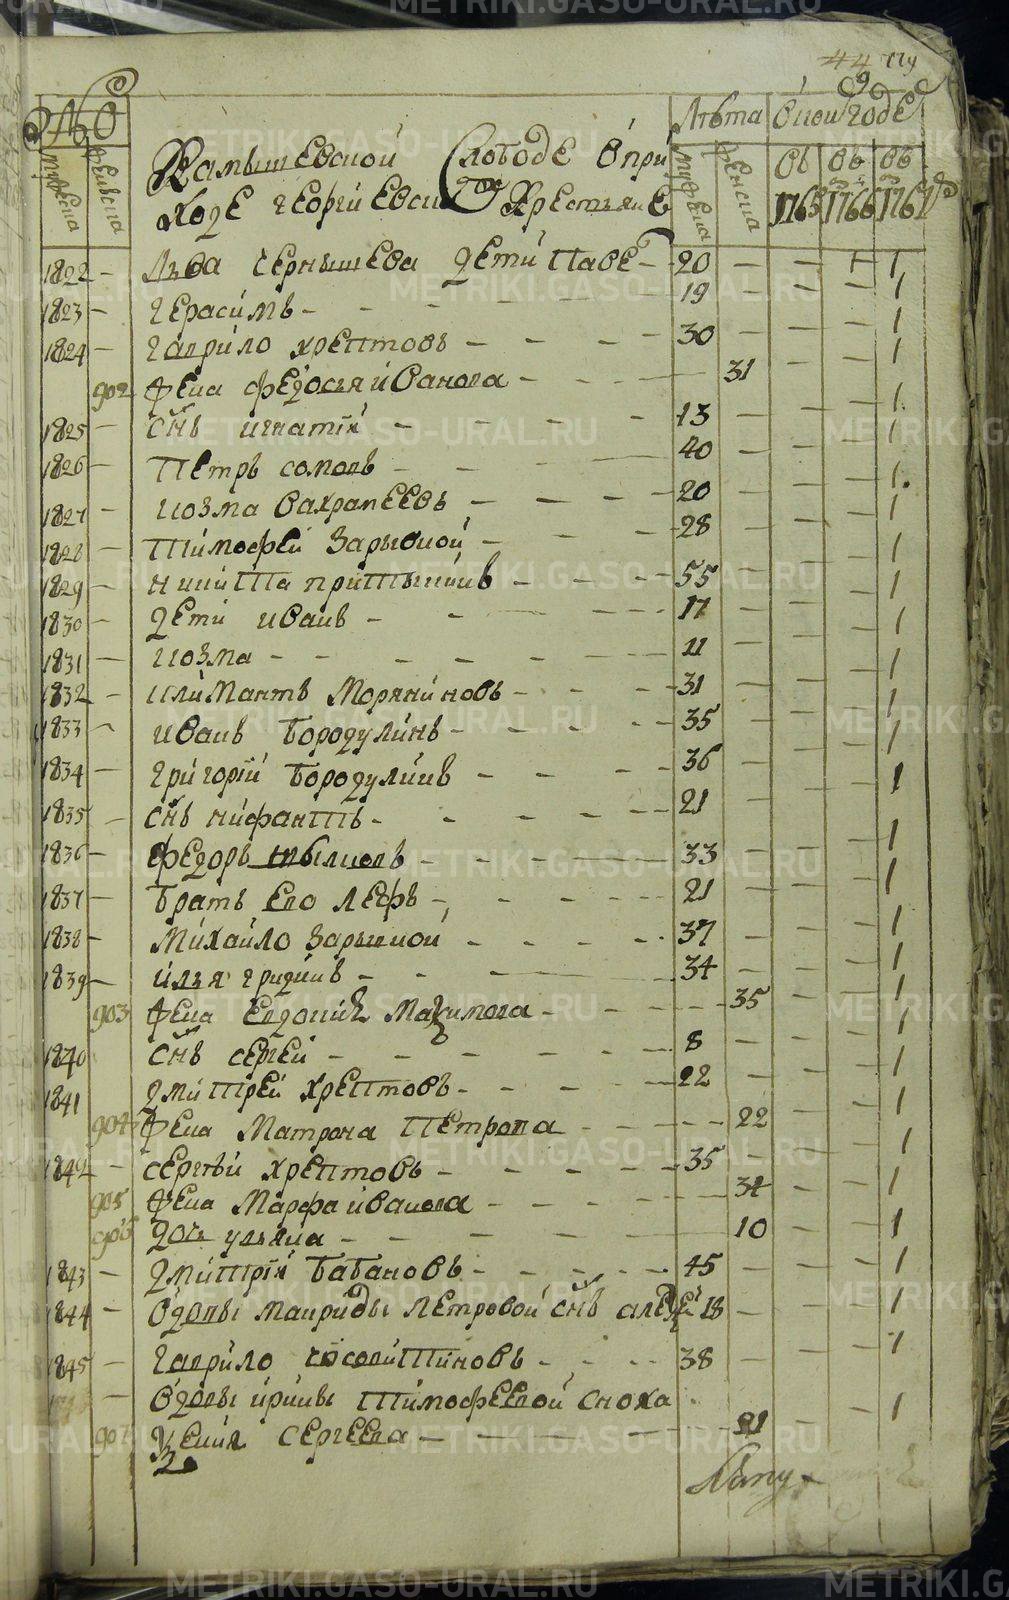 44 119
№ Лѣта В коⷨ годѣ
мужска женска Камышевской слободе в при мужеска женска въ въ въ
ходе георгиевско крестьяне 1765 1766 1767
1822 — Лва Чернышева дети Паве — 20 — — 1 1
1823 — герасимъ — 19 — — — 1
1824 — гаврило хрептовъ — 30 — — — 1
902 жена федосья иванова — 31 — — 1
1825 — снъ игнатiй — 13 — — — 1
1826 — Петръ сомовъ — 40 — — — 1
1827 — козма вахрамеевъ — 20 — — — 1
1828 — Тимофей Зарывной — 28 — — — 1
1829 — никита притыкинъ — 55 — — — 1
1830 — дети иванъ — 17 — — — 1
1831 — козма — 11 — — — 1
1832 — климантъ Моряниновъ — 31 — — — 1
1833 — иванъ Бородулинъ — 35 — — — 1
1834 — григорiй Бородулинъ — 36 — — — 1
1835 — снъ нифантъ — 21 — — — 1
1836 — федоръ — 33 — — — 1
1837 — братъ Ево — 21 — — — 1
1838 — Михайло Зарывной — 37 — — — 1
1839 — илья гридинъ — 34 — — — 1
903 жена Евдокия Максимова — 35 — — 1
1840 снъ сергей — 8 — — — 1
1841 дмитрей хрептовъ — 22 — — — 1
904 жена Матрона Петрова — 22 — — 1
1842 — сергѣй хрептовъ — 35 — — — 1
905 жена Марфа иванова — 34 — — 1
906 дочь ульяна — 10 — — 1
1843 — дмитрiй Бабановъ — 45 — — — 1
1844 — вдовы Петровой снъ 18 — — — 1
1845 — гаврило — 38 — — — 1
— вдовы ирины Тимофеевой сноха
907 Ксения Сергеева — 21 — — 1